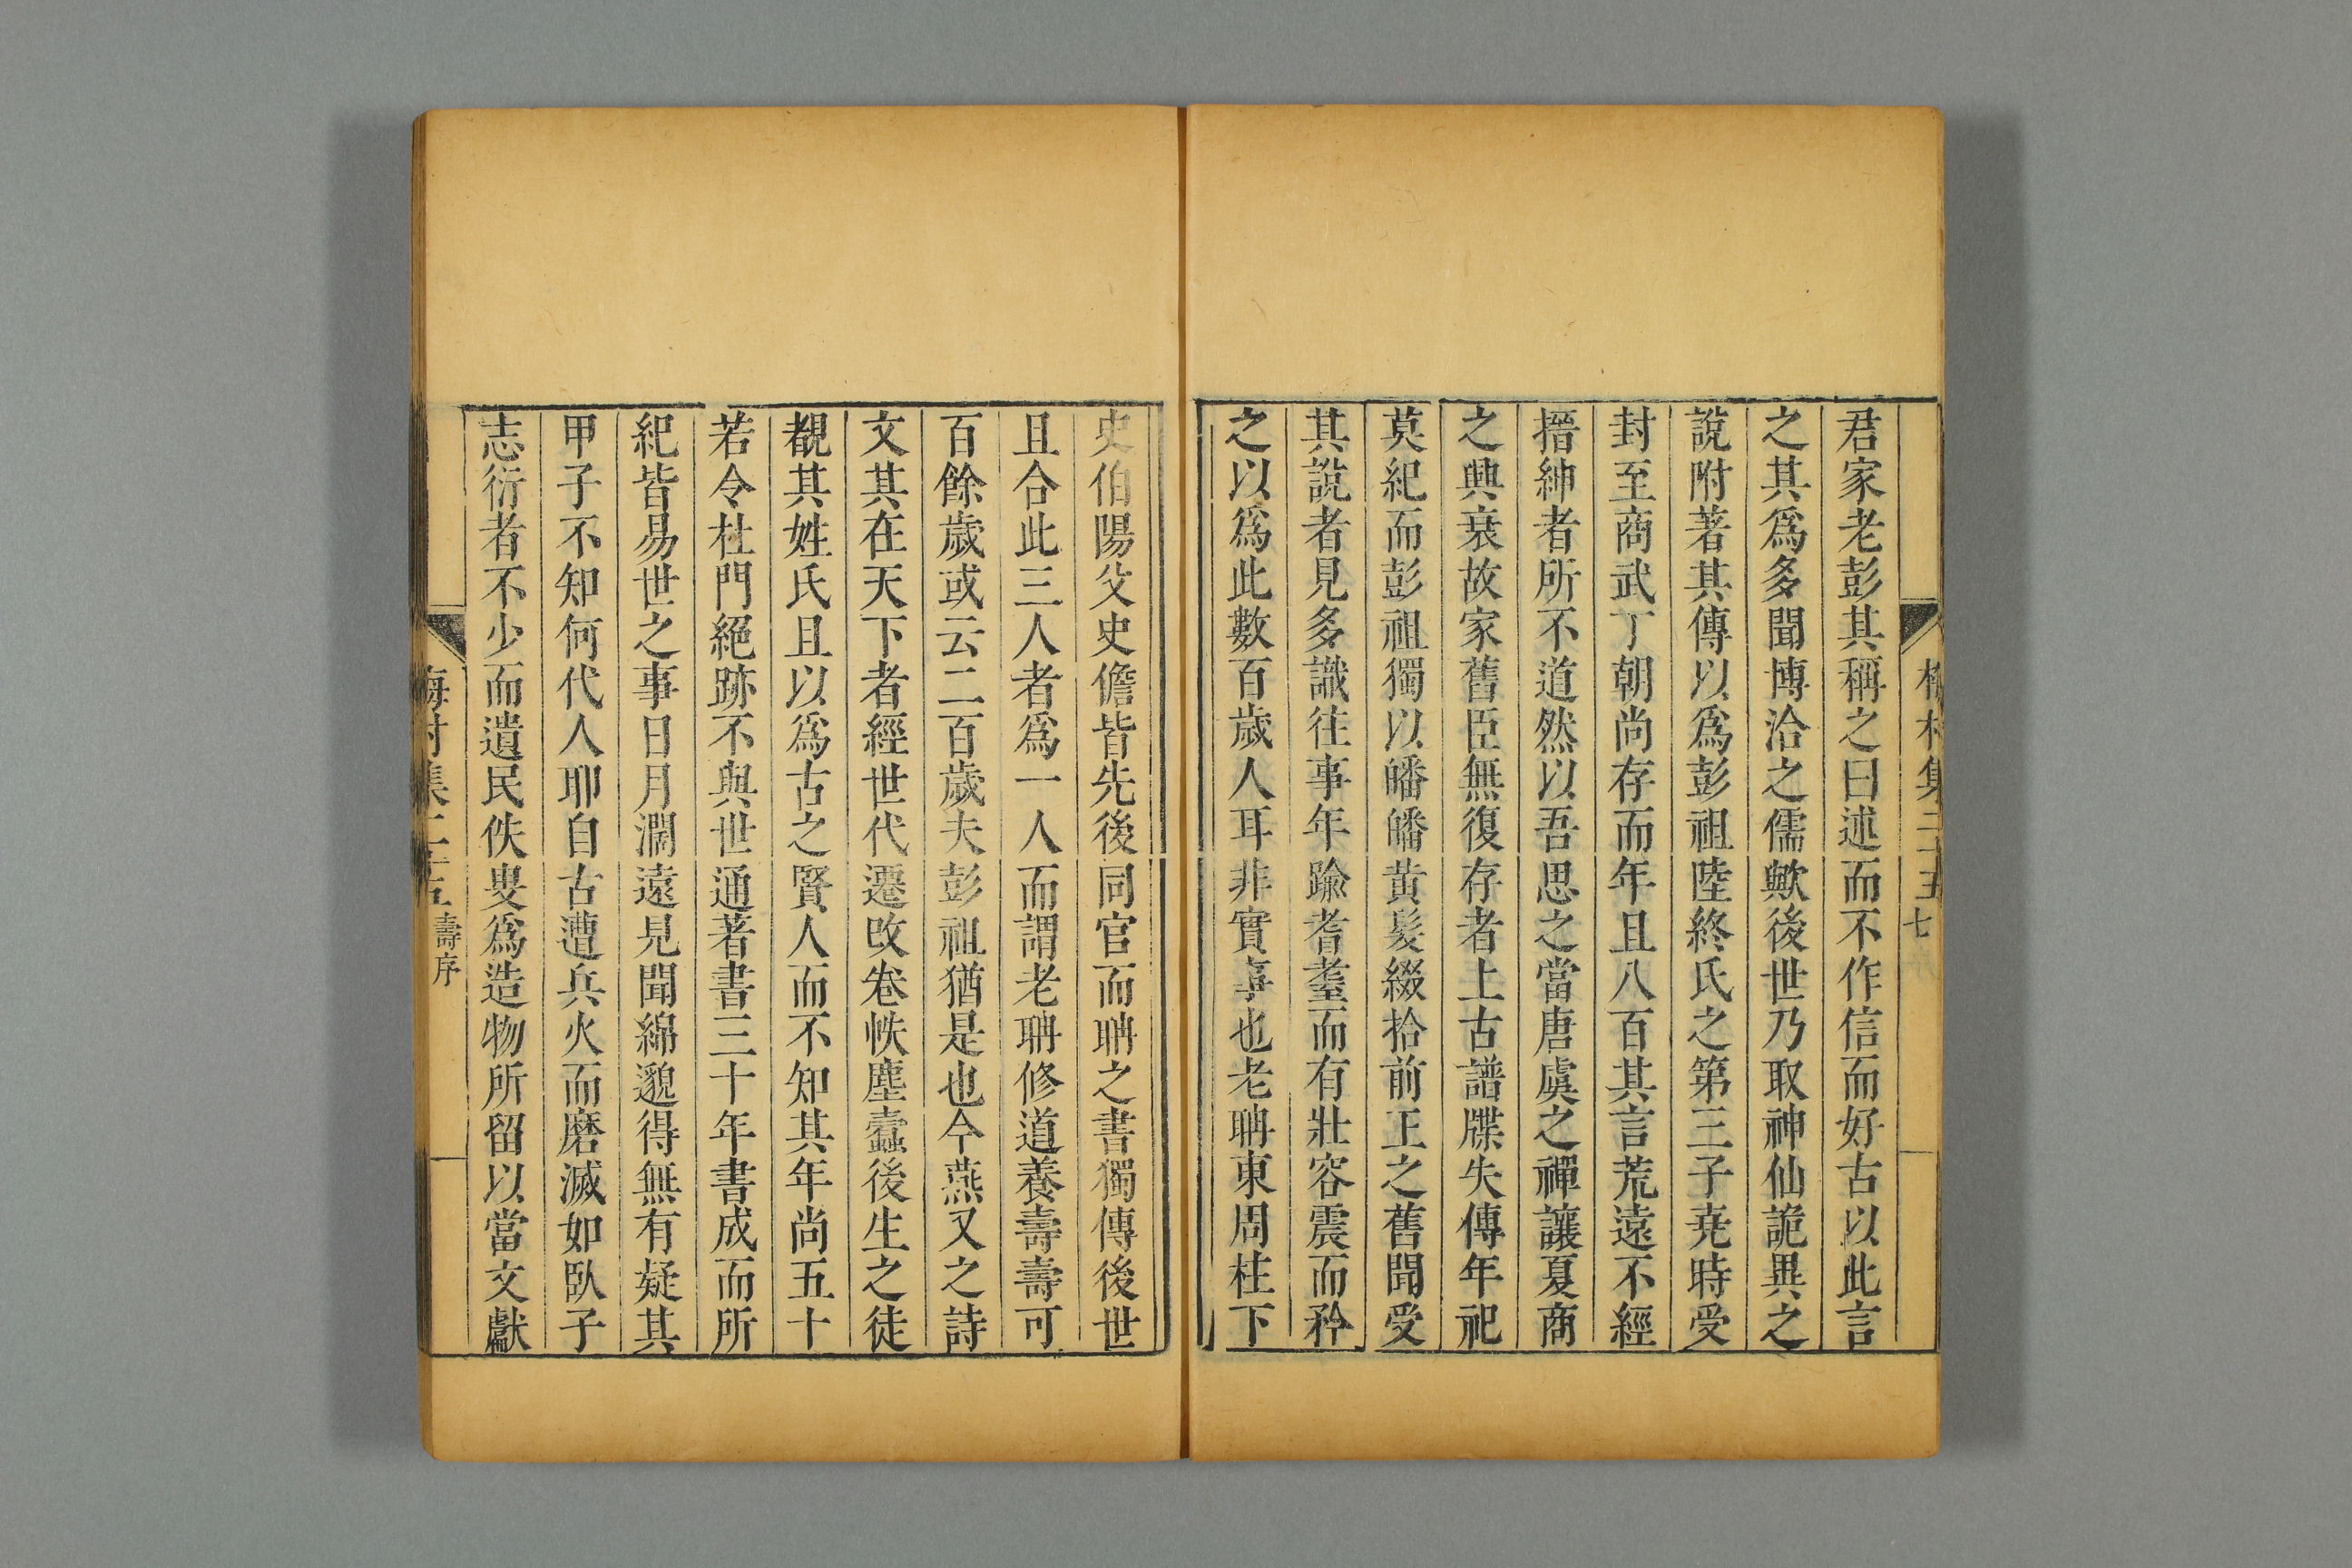 梅村集二十五 七
君家老彭其稱之曰述而不作信而好古以此言
之其爲多聞博洽之儒歟後世乃取神仙詭異之
說附著其傳以爲彭祖陸終氏之第三子堯時受
封至商武丁朝尚存而年且八百其言荒遠不經
搢紳者所不道然以吾思之當唐虞之禪讓夏商
之興衰故家舊臣無復存者上古譜牒失傳年祀
莫紀而彭祖獨以皤皤黄髮綴拾前王之舊聞受
其說者見多識往事年踰耆耋而有壯容震而矜
之以爲此數百歲人耳非實事也老聃東周柱下
史伯陽父史儋皆先後同官而聃之書獨傳後世
且合此三人者爲一人而謂老聃修道養壽壽可
百餘歲或云二百歲夫彭祖猶是也今燕又之詩
文其在天下者經世代遷改卷帙塵蠹後生之徒
覩其姓氏且以爲古之賢人而不知其年尚五十
若令杜門絕跡不與世通著書三十年書成而所
紀皆易世之事日月濶遠見聞綿邈得無有疑其
甲子不知何代人耶自古遭兵火而磨滅如臥子
志衍者不少而遺民佚叟爲造物所留以當文獻
梅村集二十五 壽序